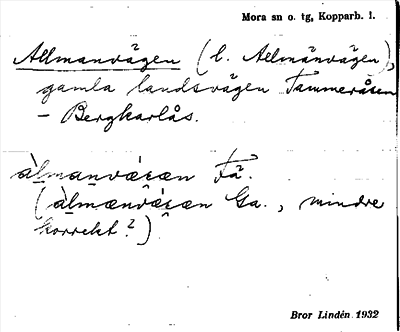 Mora sn o. tg, Kopparb. l.
Allmanvägen (l. Allmänvägen),
gamla landsvägen Tammeråsen
– Bergkarlås.
àlmanvǽɛæn Få.
(àlmænvǽɛæn Ga., mindre
korrekt?)
Bror Lindén 1932